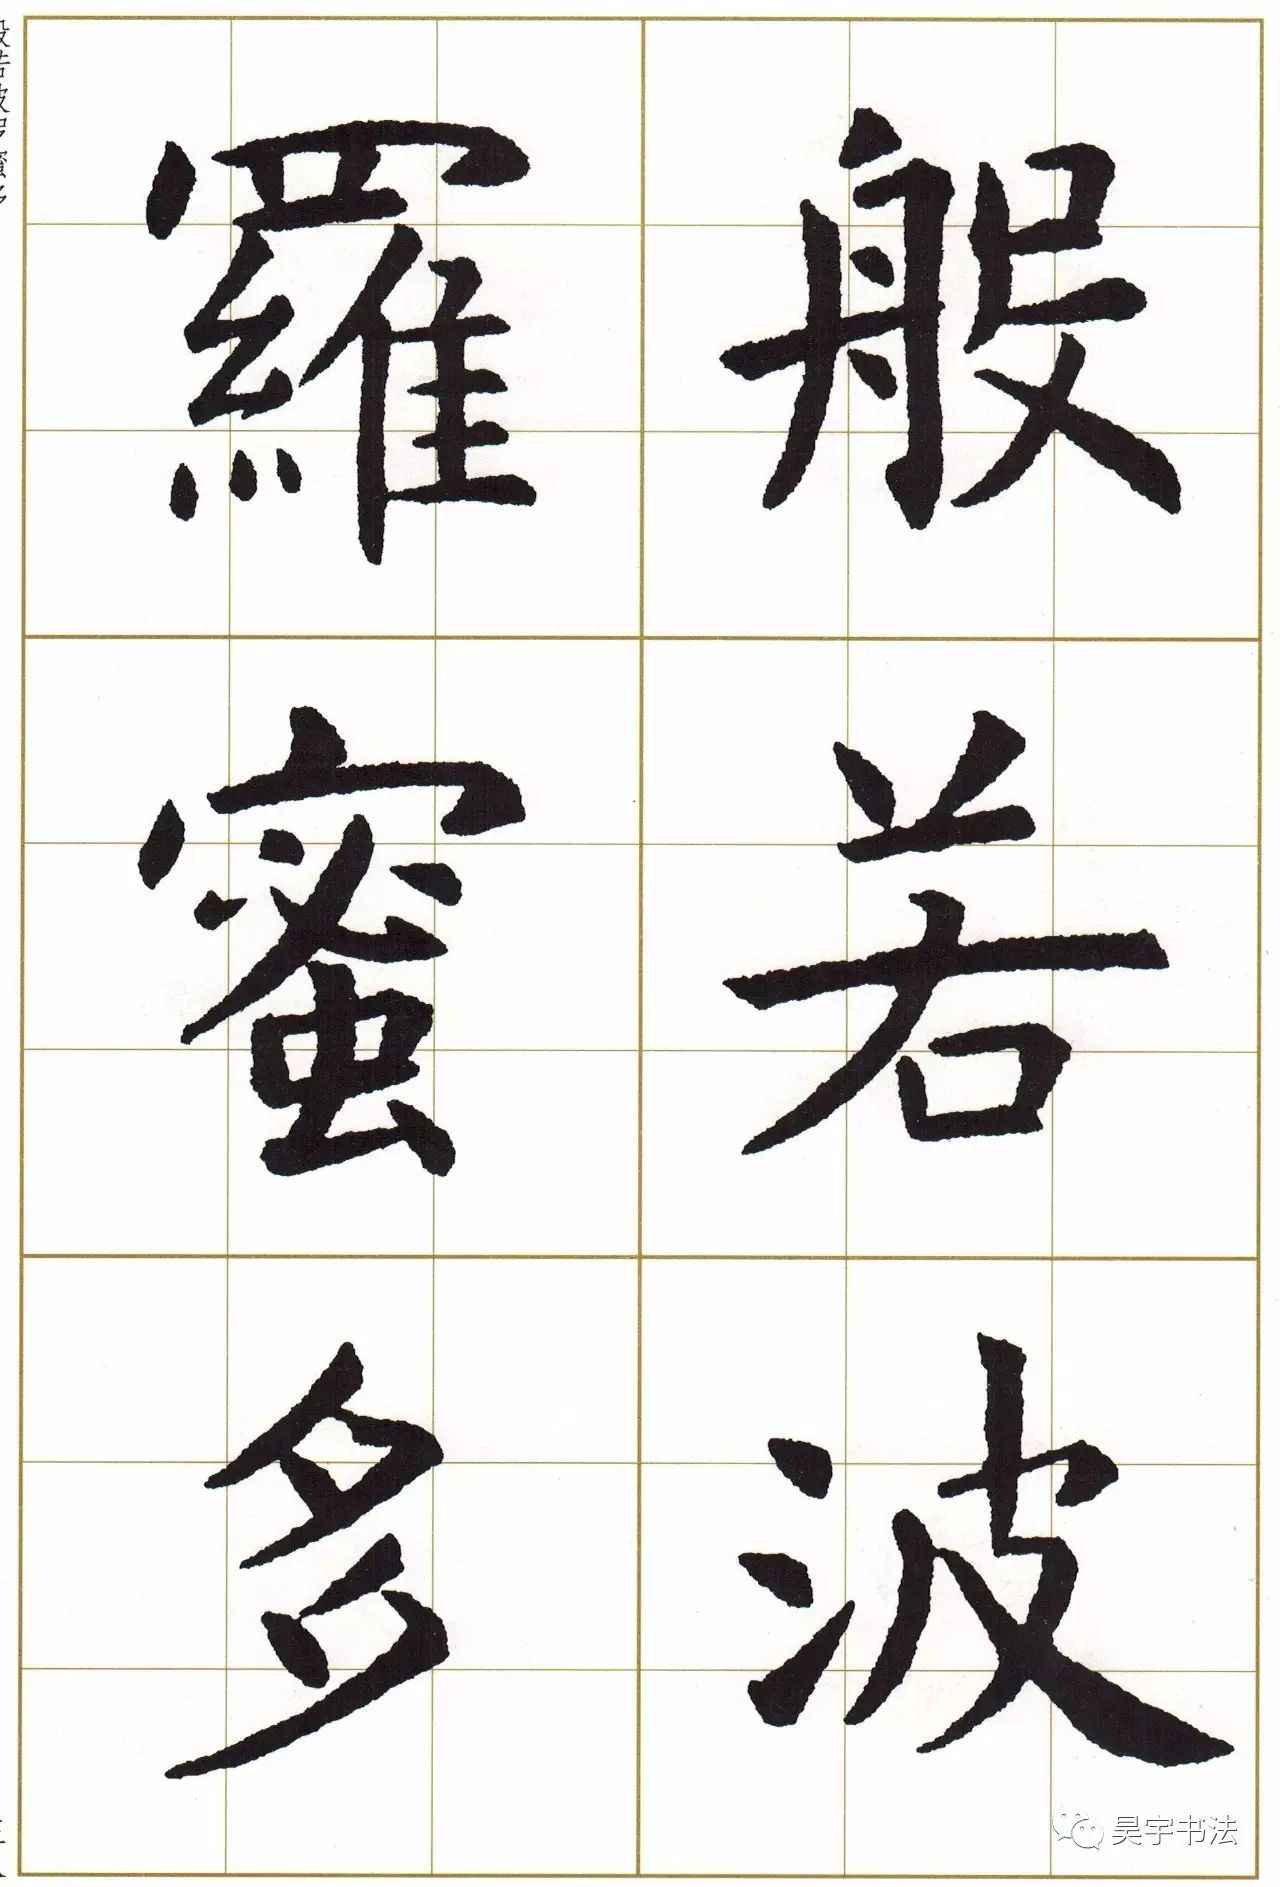 般若波
羅蜜多
般若波罗蜜多
昊宇书法